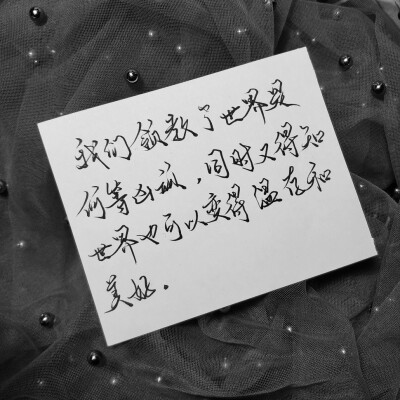 我们领教了世界是
何等凶顽，同时又得知
世界也可以变得温存和
美好．